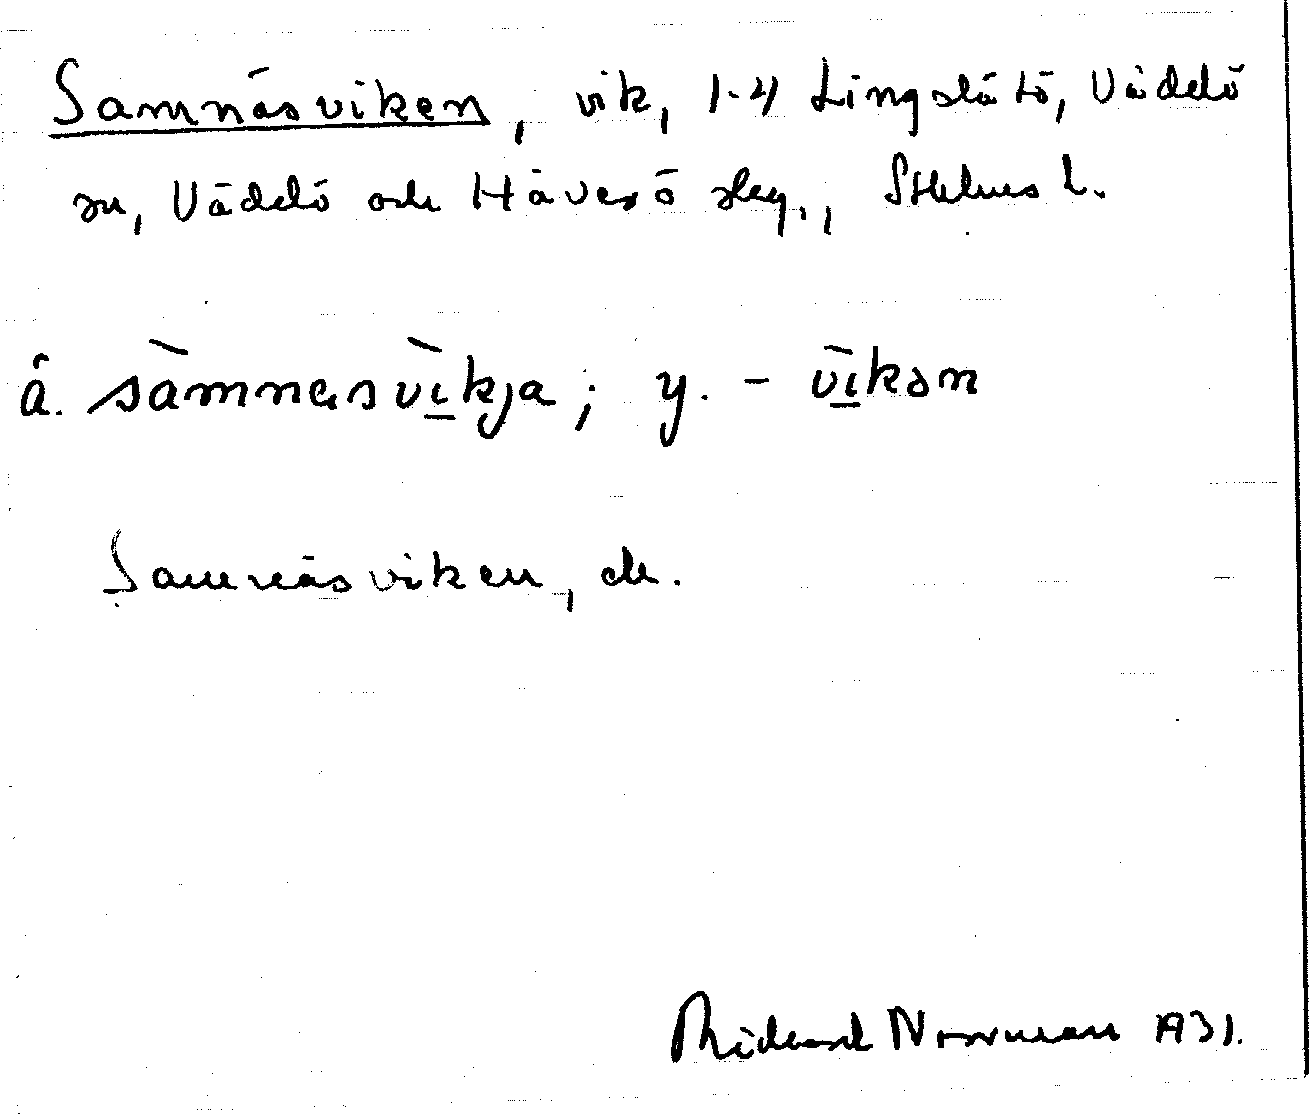 Samnäsviken, vik, 1-4 Lingslätö, Väddö
sn, Väddö och Häverö skg., Sthlms l.
å. sàmnasvìkja; y. - vìkən
Samnäsviken, ek.
Rickard Norrman 1931.